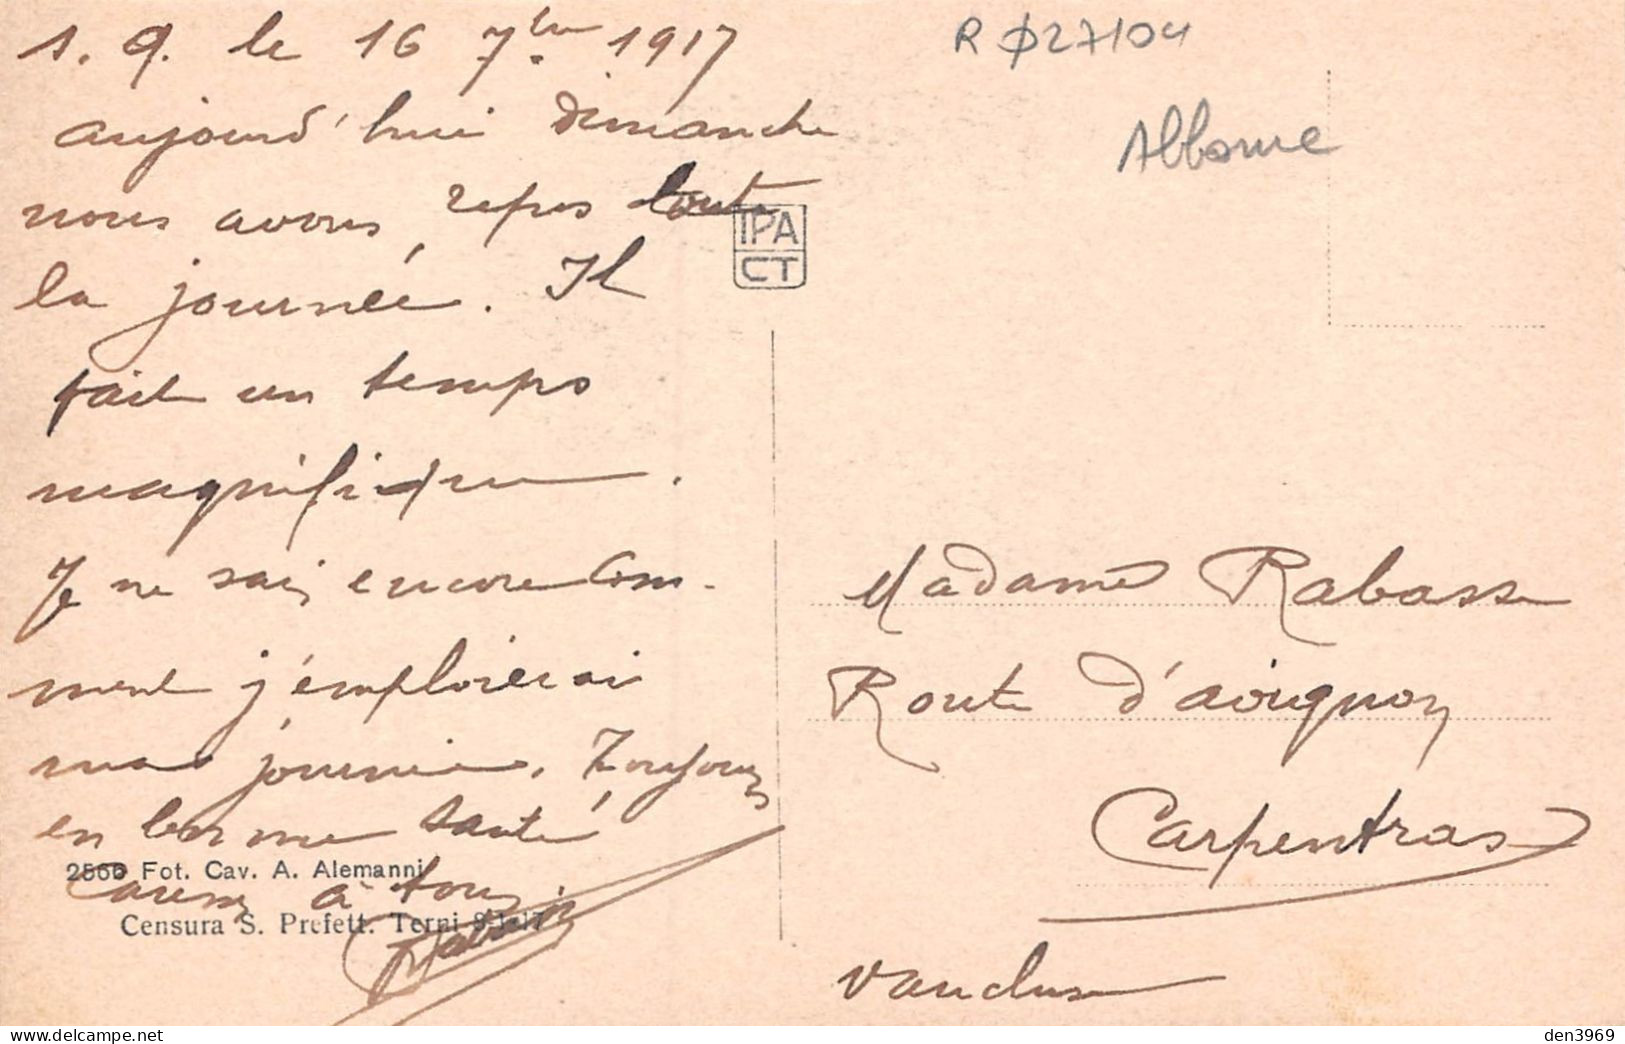 le 16 7bre 1917
aujourd'hui dimanche
nous avons repos toute
la journée. Il
fait un temps
magnifique.
Je ne sais encore com-
ment j'emploierai
ma journée. Toujours
en bonne santé
à tous
2566 Fot. Cav. A. Alemanni
Censura S. Prefett. Terni 8-1-17
R Ø27104
IPA
CT
Madame Rabasse
Route d'avignon
Carpentras
Vaucluse
den3969